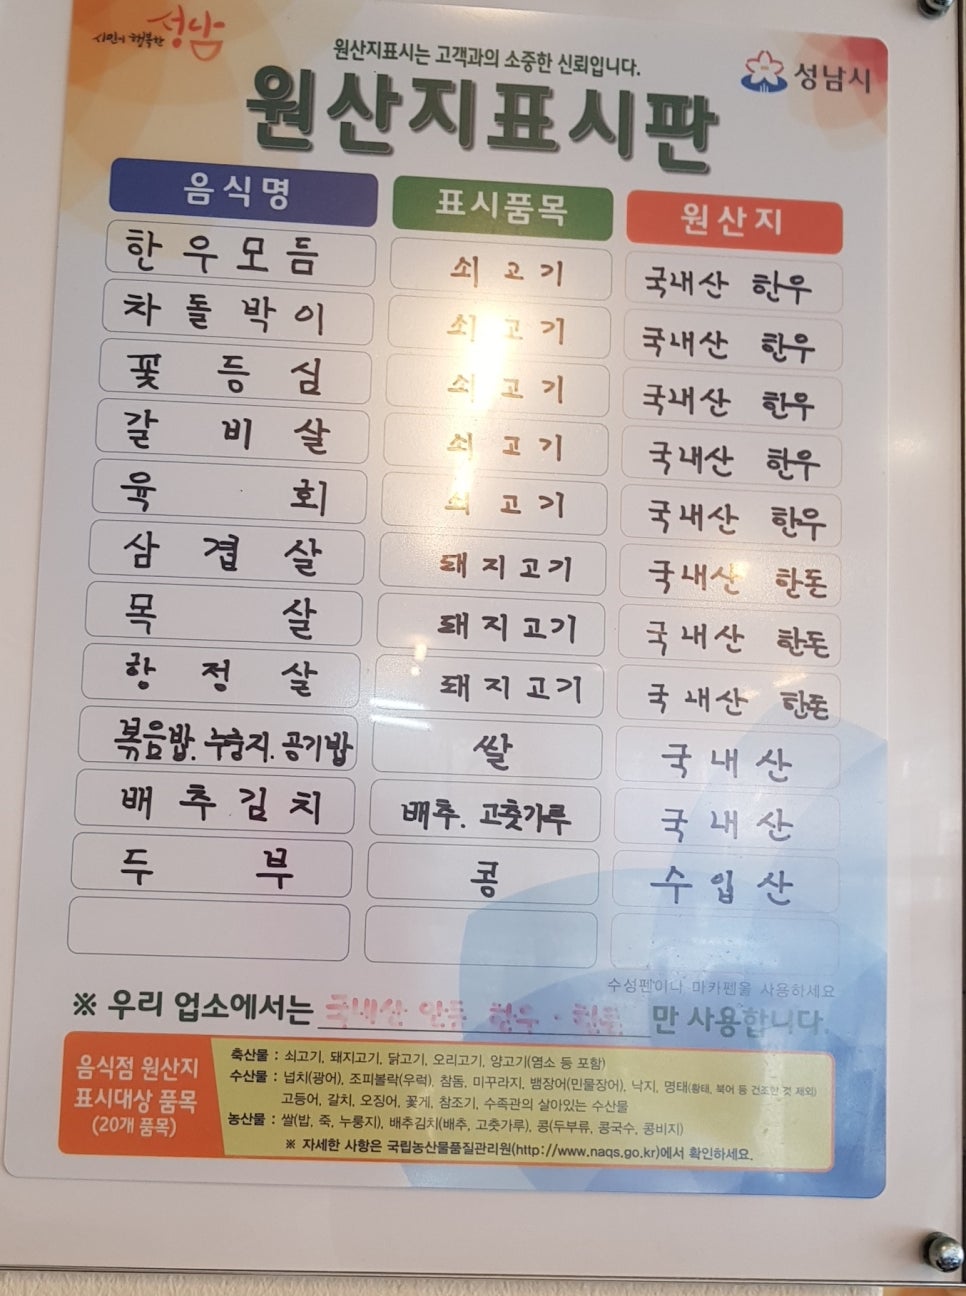 시민이 행복한 성남
원산지표시는 고객과의 소중한 신뢰입니다.
성남시
원산지표시판
음식명 표시품목 원산지
한우모듬 쇠고기 국내산 한우
차돌박이 쇠고기 국내산 한우
꽃등심 쇠고기 국내산 한우
갈비살 쇠고기 국내산 한우
육회 쇠고기 국내산 한우
삼겹살 돼지고기 국내산 한돈
목살 돼지고기 국내산 한돈
항정살 돼지고기 국내산 한돈
볶음밥. 누룽지. 공기밥 쌀 국내산
배추김치 배추. 고춧가루 국내산
두부 콩 수입산
수성펜이나 마카펜을 사용하세요
※ 우리 업소에서는 국내산 한우 · 한돈 만 사용합니다.
음식점 원산지
표시대상 품목
(20개 품목)
축산물 : 쇠고기, 돼지고기, 닭고기, 오리고기, 양고기(염소 등 포함)
수산물 : 넙치(광어), 조피볼락(우럭), 참돔, 미꾸라지, 뱀장어(민물장어), 낙지, 명태(황태, 북어 등 건조한 것 제외)
고등어, 갈치, 오징어, 꽃게, 참조기, 수족관의 살아있는 수산물
농산물 : 쌀(밥, 죽, 누룽지), 배추김치(배추, 고춧가루), 콩(두부류, 콩국수, 콩비지)
※ 자세한 사항은 국립농산물품질관리원(http://www.naqs.go.kr)에서 확인하세요.